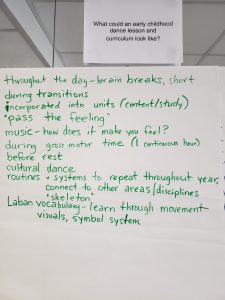 What could an early childhood
dance lesson and
curriculum look like?
throughout the day - brain breaks, short
during transitions
incorporated into units (content/study)
"pass the feeling"
music - how does it make you feel?
during gross motor time (1 continuous hour)
before rest
cultural dance
routines + systems to repeat throughout year,
connect to other areas/disciplines
"skeleton"
Laban vocabulary - learn through movement
visuals, symbol system